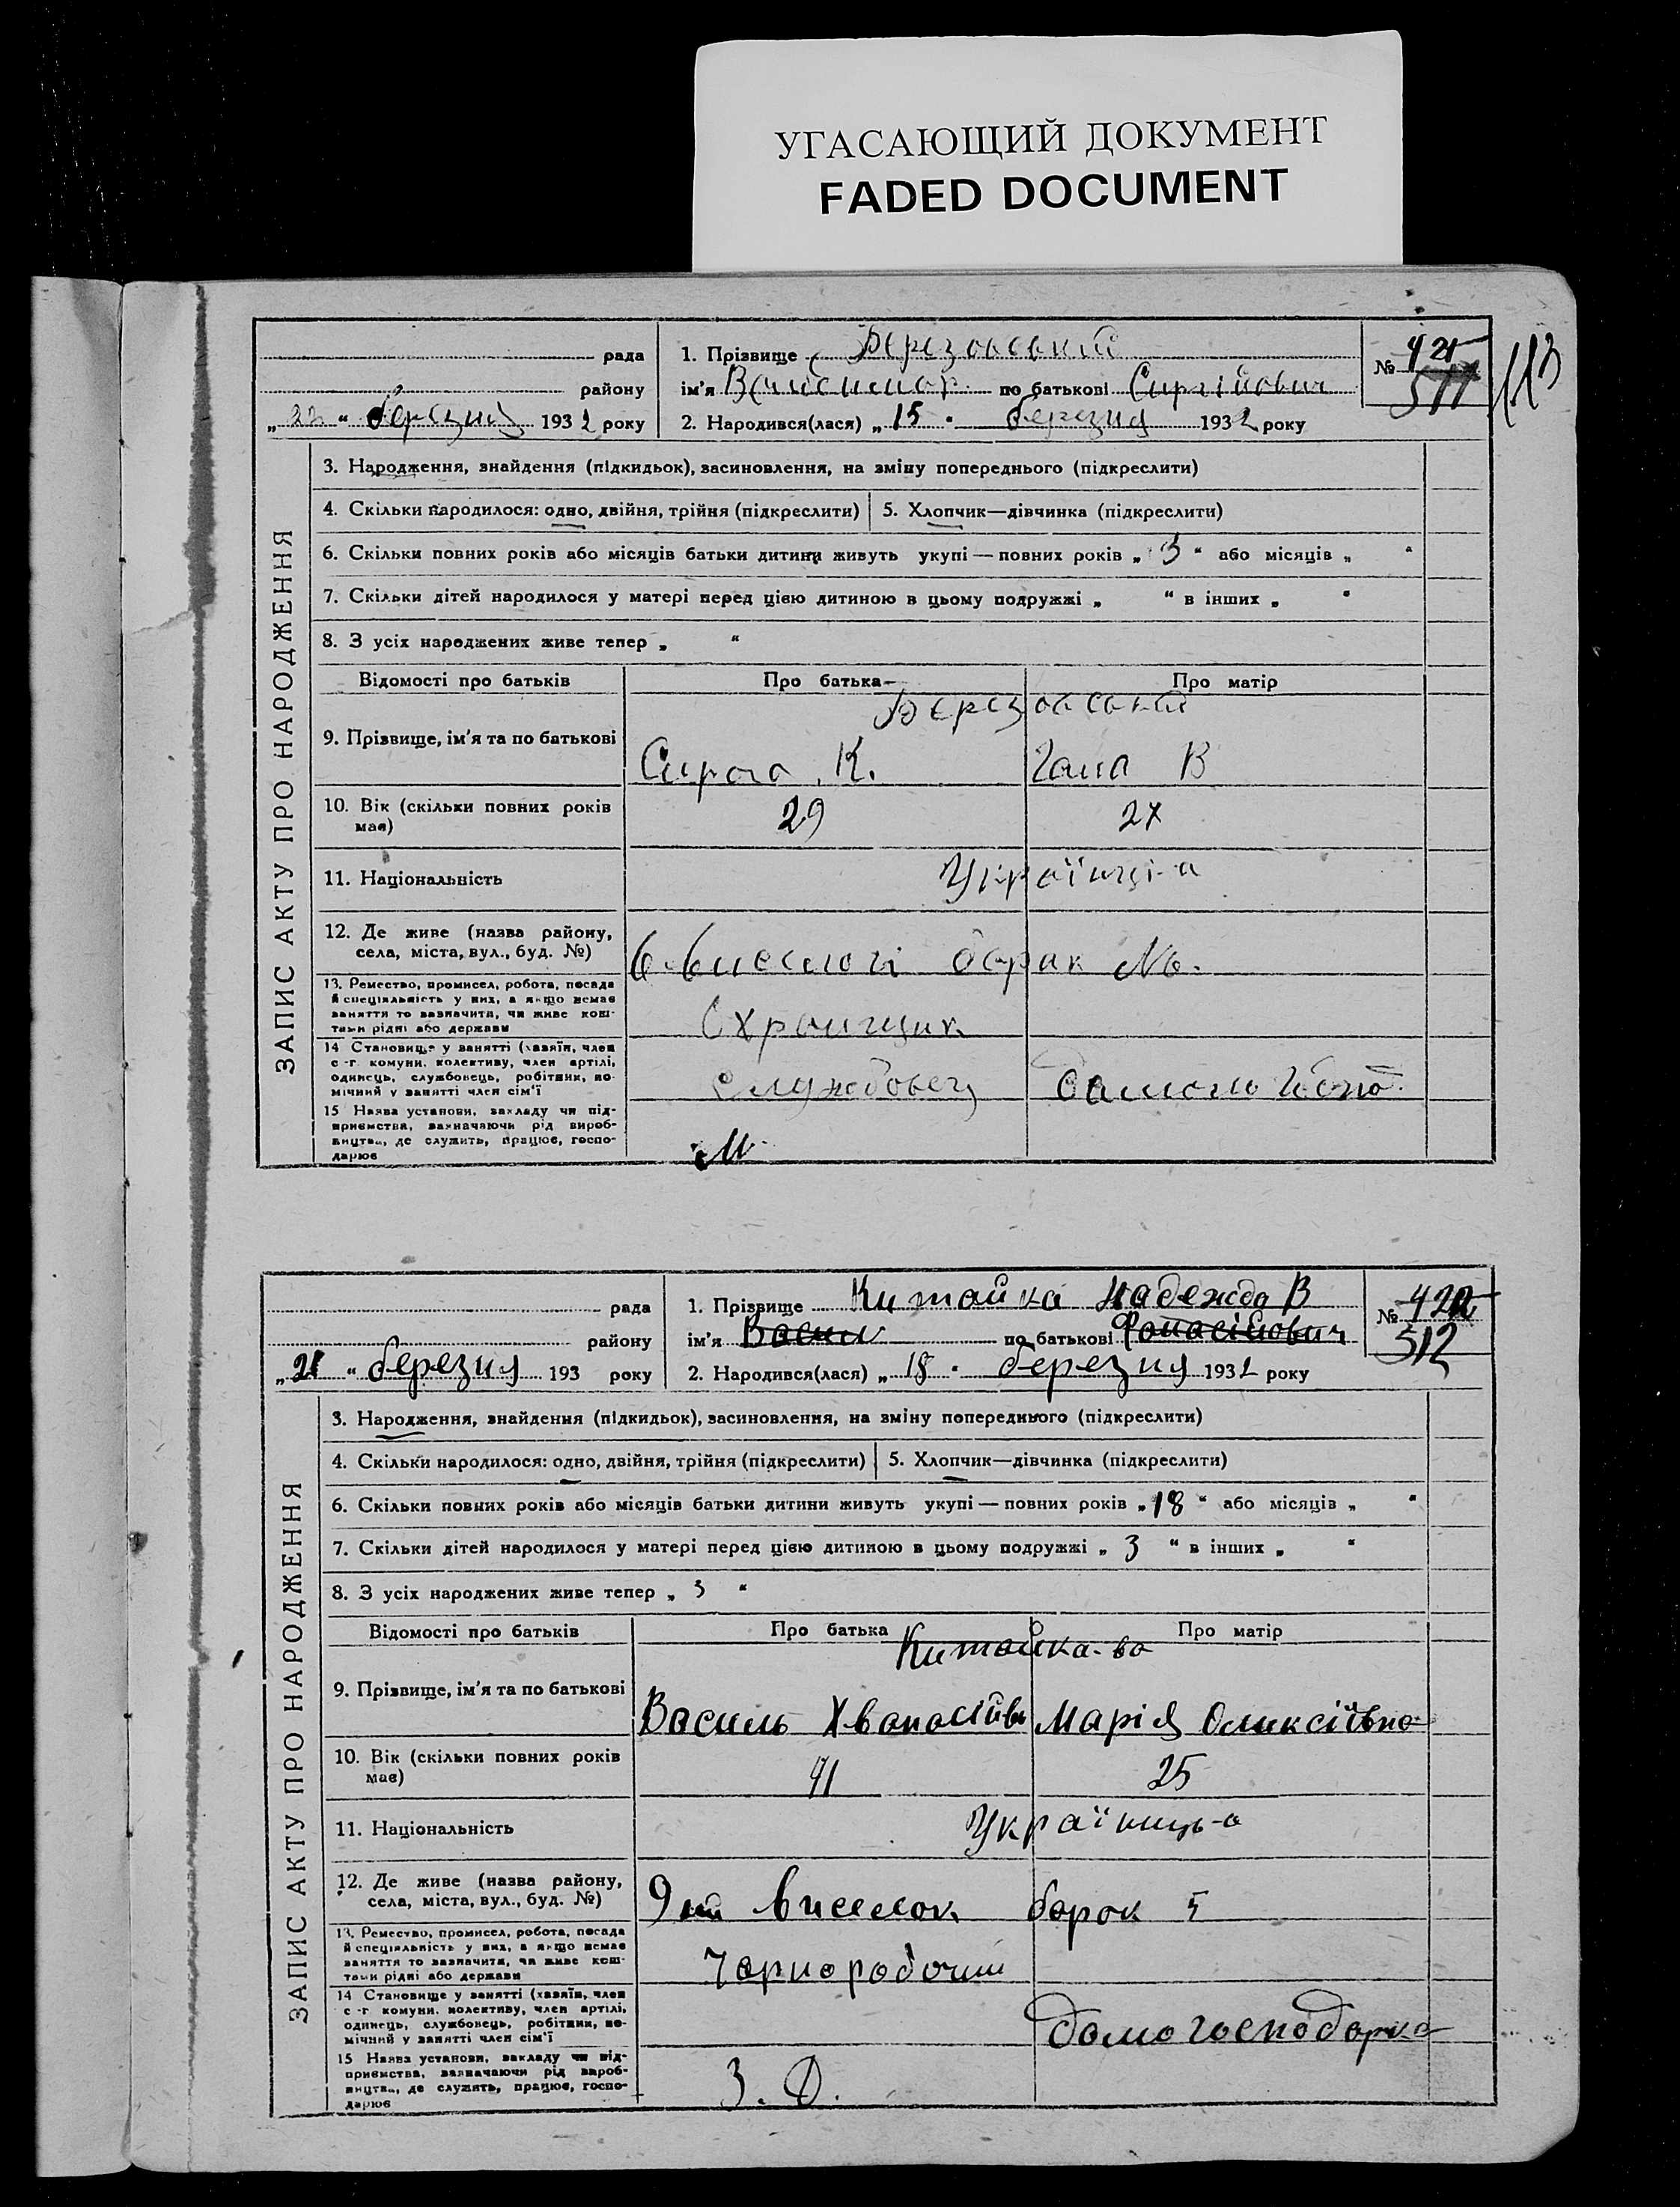 УГАСАЮЩИЙ ДОКУМЕНТ
FADED DOCUMENT
113
ЗАПИС АКТУ ПРО НАРОДЖЕННЯ
рада
району
„ 22 “ березня 1932 року
1. Прізвище Березовський
ім'я по батькові
2. Народився(лася) „ 15 “ березня 1932 року
№ 421
511
3. Народження, знайдення (підкидьок), засиновлення, на зміну попереднього (підкреслити)
4. Скільки народилося: одно, двійня, трійня (підкреслити)
5. Хлопчик—дівчинка (підкреслити)
6. Скільки повних років або місяців батьки дитини живуть укупі — повних років „ 3 “ або місяців „ “
7. Скільки дітей народилося у матері перед цією дитиною в цьому подружжі „ “ в інших „ “
8. З усіх народжених живе тепер „ “
Відомості про батьків
Про батька
Про матір
9. Прізвище, ім'я та по батькові
К.
Гана В
10. Вік (скільки повних років
має)
29
27
11. Національність
12. Де живе (назва району,
села, міста, вул., буд. №)
барак №
13. Ремество, промисел, робота, посада
й спеціяльність у них, а якщо немає
заняття то зазначити, чи живе кош-
тами рідні або держави
Охранщик
14 Становище у занятті (хазяїн, член
с.-г. комуни, колективу, член артілі,
одинець, службовець, робітник, по-
мічний у занятті член сім'ї
службовец
15 Назва установи, закладу чи під-
приємства, зазначаючи рід вироб-
ництва, де служить, працює, госпо-
дарює
ЗАПИС АКТУ ПРО НАРОДЖЕННЯ
рада
району
„ 21 “ березня 193 року
1. Прізвище Китайка Надежда В
ім'я Василь по батькові
2. Народився(лася) „ 18 “ березня 1932 року
№ 422
512
3. Народження, знайдення (підкидьок), засиновлення, на зміну попереднього (підкреслити)
4. Скільки народилося: одно, двійня, трійня (підкреслити)
5. Хлопчик—дівчинка (підкреслити)
6. Скільки повних років або місяців батьки дитини живуть укупі — повних років „ 18 “ або місяців „ “
7. Скільки дітей народилося у матері перед цією дитиною в цьому подружжі „ 3 “ в інших „ “
8. З усіх народжених живе тепер „ 3 “
Відомості про батьків
Про батька
Про матір
Китайка-ва
9. Прізвище, ім'я та по батькові
Василь
Марія Олексіївна
10. Вік (скільки повних років
має)
41
25
11. Національність
Українець-а
12. Де живе (назва району,
села, міста, вул., буд. №)
9 ий виселок барок 5
13. Ремество, промисел, робота, посада
й спеціяльність у них, а якщо немає
заняття то зазначити, чи живе кош-
тами рідні або держави
Чорноробочий
14 Становище у занятті (хазяїн, член
с.-г. комуни, колективу, член артілі,
одинець, службовець, робітник, по-
мічний у занятті член сім'ї
домогосподарка
15 Назва установи, закладу чи під-
приємства, зазначаючи рід вироб-
ництва, де служить, працює, госпо-
дарює
З. Д.